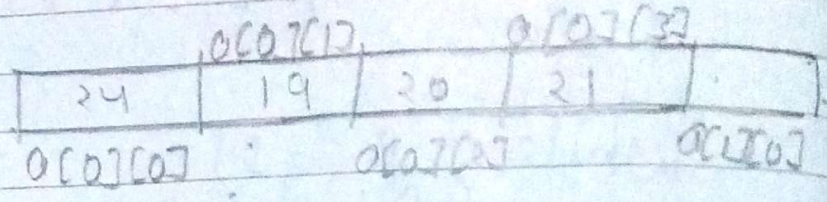 a[0][1] a[0][3]
24 19 20 21
a[0][0] a[0][2] a[1][0]